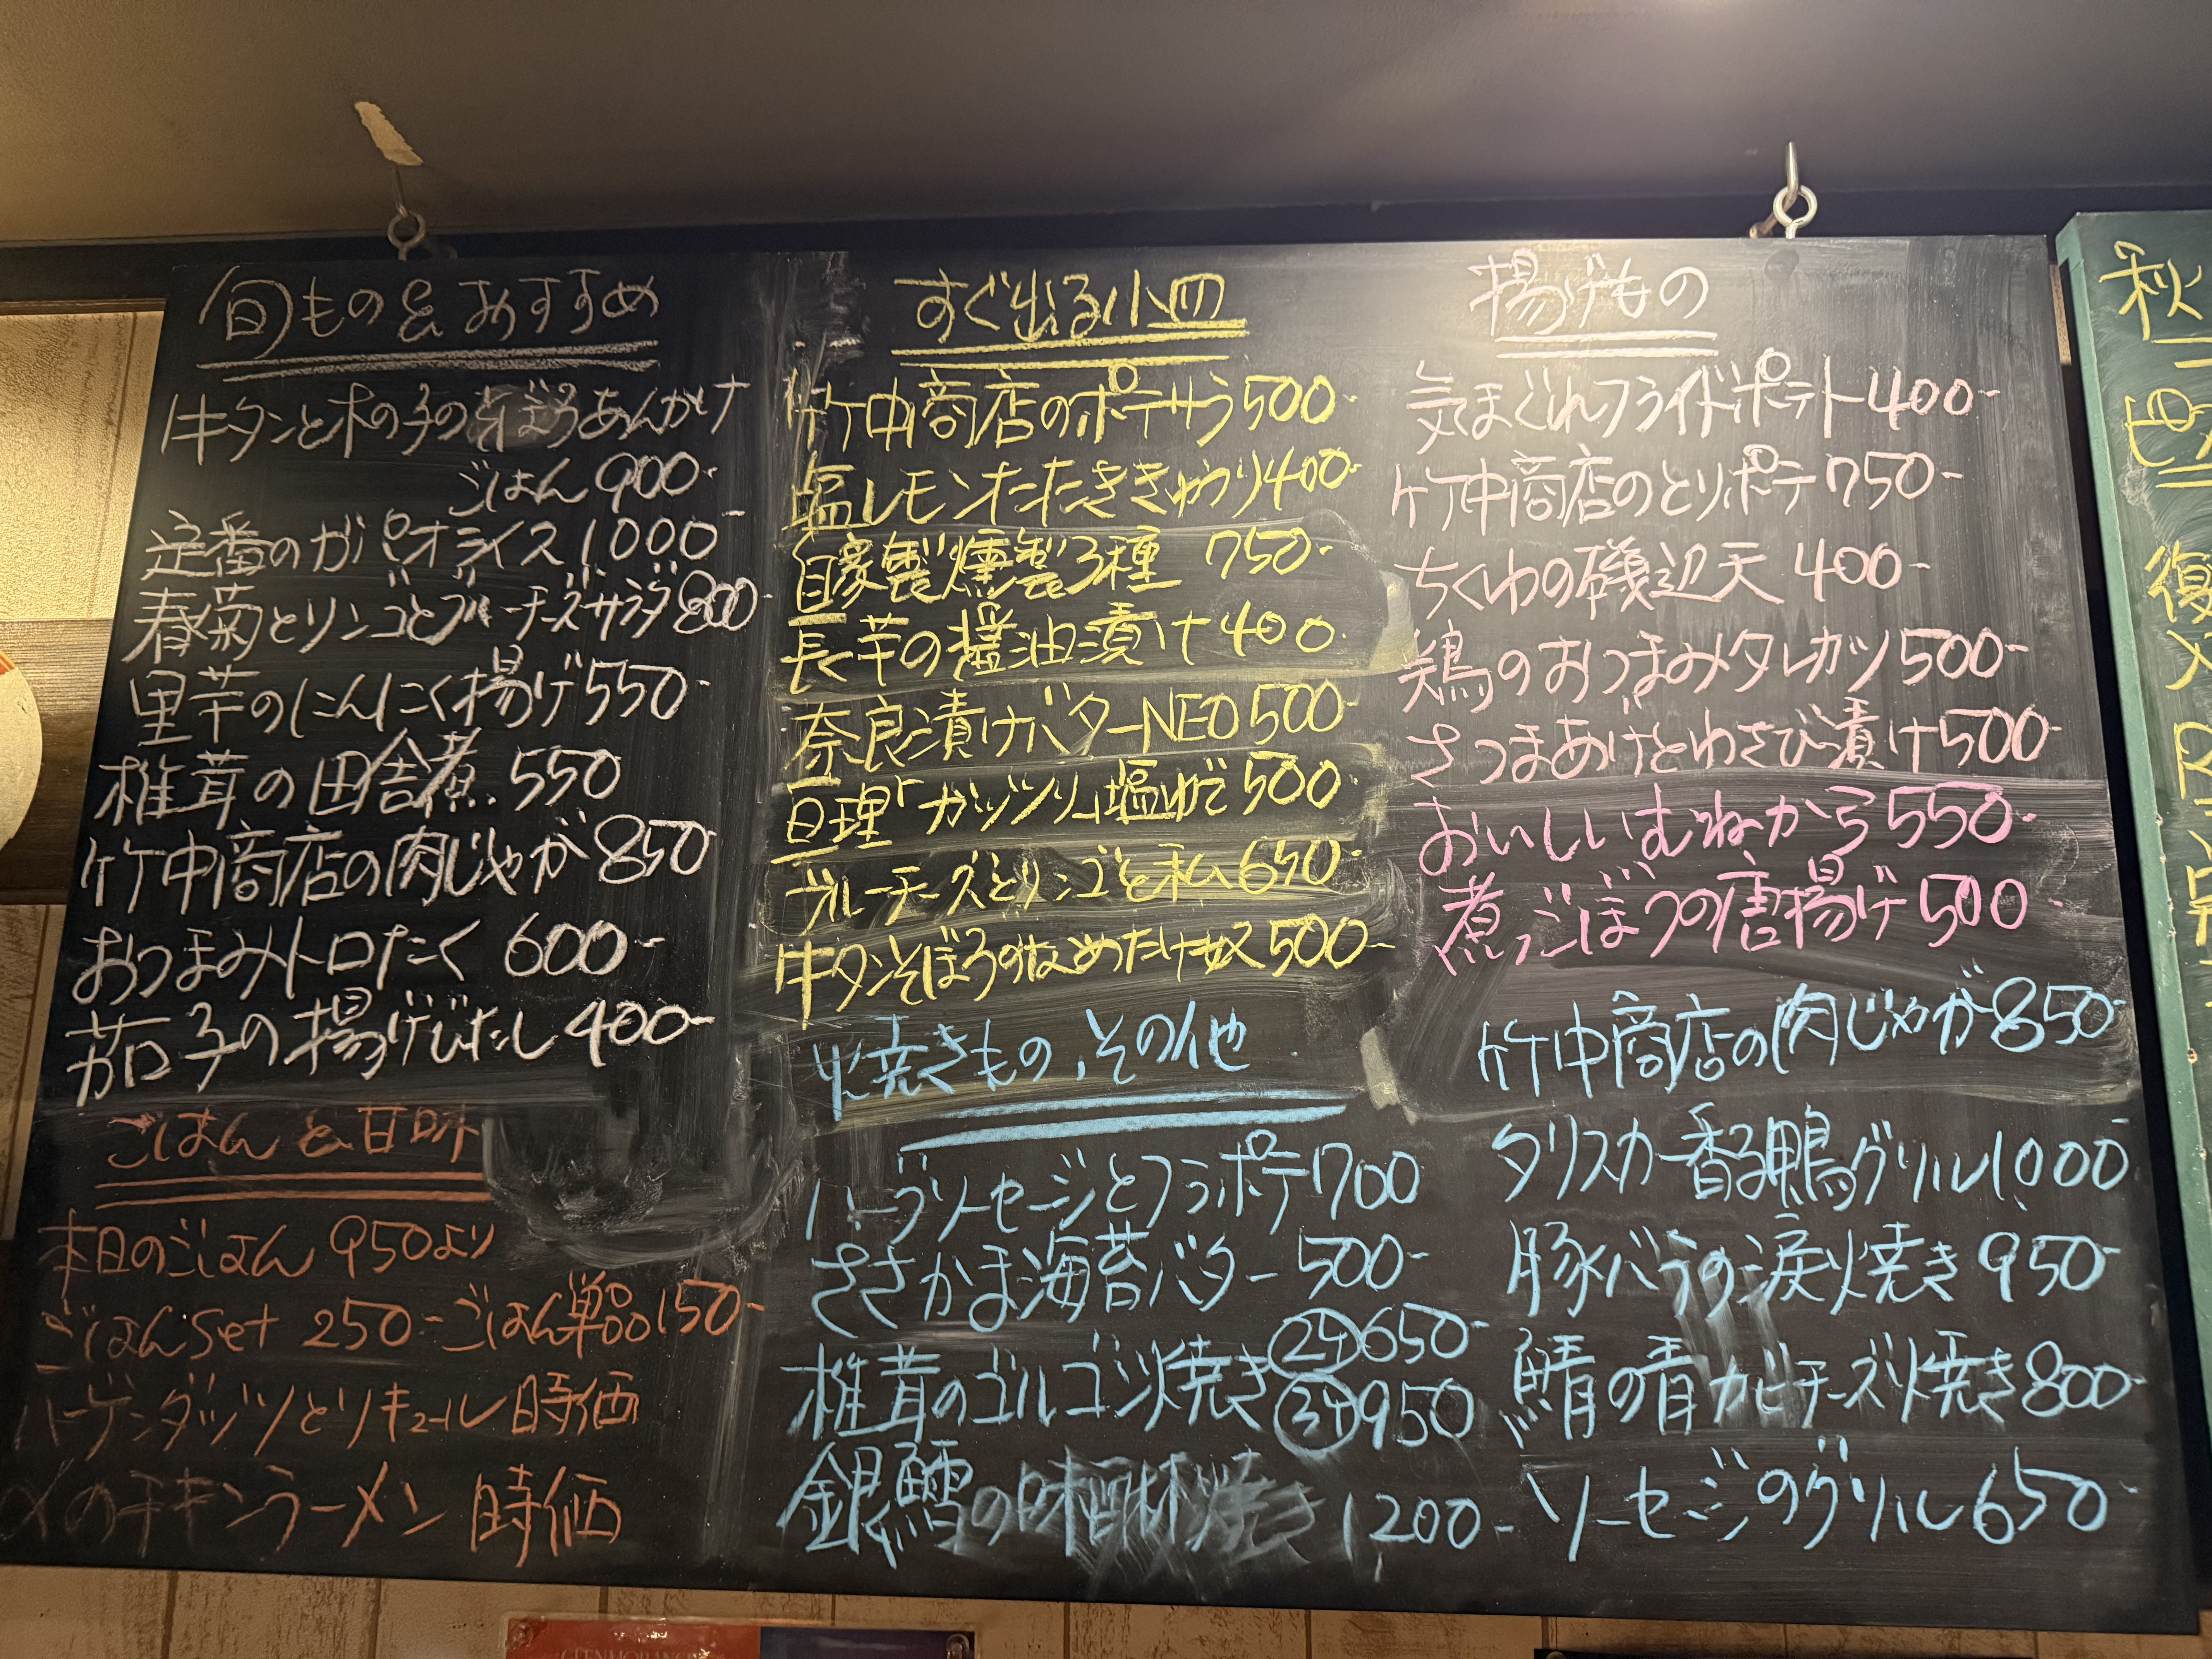 旬もの&おすすめ
牛タンと木の子のそぼろあんかけ
ごはん 900-
定番のガパオライス 1000-
春菊とリンゴとブルーチーズサラダ 800-
里芋のにんにく揚げ 550-
椎茸の田舎煮 550
竹中商店の肉じゃが 850-
おつまみトロたく 600-
茄子の揚げびたし 400-
ごはんと甘味
本日のごはん 950より
ごはんset 250- ごはん単品 150-
ハーゲンダッツとリキュール 時価
〆のチキンラーメン 時価
すぐ出る小皿
竹中商店のポテサラ 500-
塩レモンたたききゅうり 400-
自家製燻製3種 750-
長芋の醤油漬け 400-
奈良漬けバターNEO 500-
亘理「ガッツリ」塩ゆで 500-
ブルーチーズとリンゴと私 650-
牛タンそぼろのなめたけ奴 500-
焼きもの、その他
ハーブソーセージとフラポテ 700
ささかま海苔バター 500-
椎茸のゴルゴンゾ焼き 2ケ 650-
3ケ 950
銀鱈の味醂焼き 1200-
揚げもの
気まぐれフライドポテト 400-
竹中商店のとりポテ 750-
ちくわの磯辺天 400-
鶏のおつまみタレカツ 500-
さつまあげとわさび漬け 500-
おいしいむねから 550-
煮ごぼうの唐揚げ 500-
竹中商店の肉じゃが 850-
タリスカー香る鴨グリル 1000-
豚バラの涙焼き 950-
鯖の青カビチーズ焼き 800-
ソーセージのグリル 650-